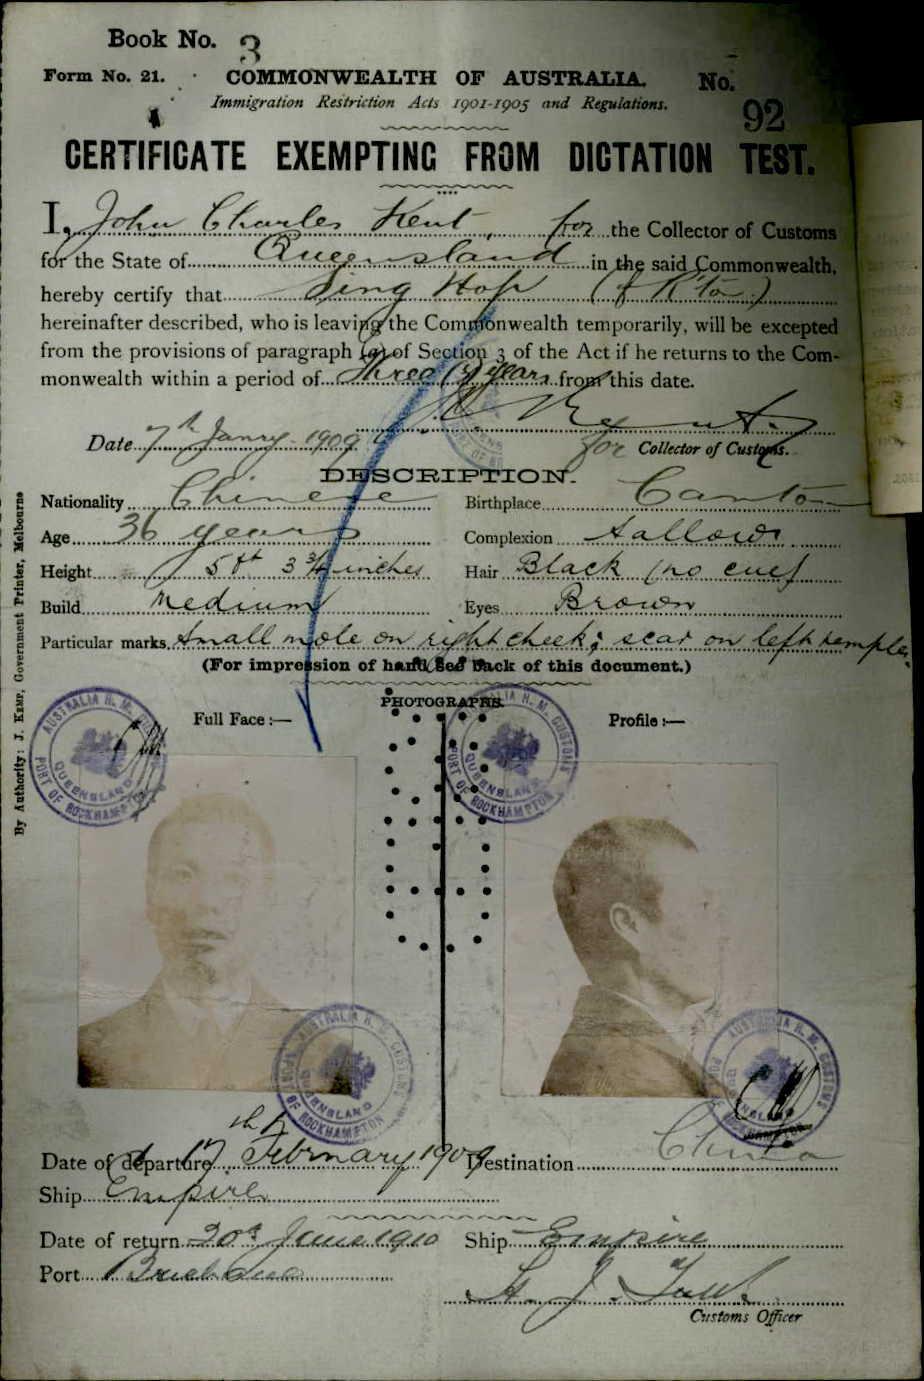 Book No. 3
Form No. 21. COMMONWEALTH OF AUSTRALIA. No. 92
Immigration Restriction Acts 1901-1905 and Regulations.
CERTIFICATE EXEMPTING FROM DICTATION TEST.
I, John Charles Kent, for the Collector of Customs
for the State of Queensland in the said Commonwealth,
hereby certify that Sing Hop (of R'ton)
hereinafter described, who is leaving the Commonwealth temporarily, will be excepted
from the provisions of paragraph (a) of Section 3 of the Act if he returns to the Com-
monwealth within a period of three (3) years from this date.
Kent
Date 7th Janry 1909 for Collector of Customs.
DESCRIPTION.
Nationality Chinese Birthplace Canton
Age 36 years Complexion Sallow
Height 5 ft 3 3/4 inches Hair Black (no cue)
Build Medium Eyes Brown
Particular marks Small mole on right cheek; scar on left temple.
(For impression of hand see back of this document.)
PHOTOGRAPHS.
Full Face :— Profile :—
AUSTRALIA H. M. CUSTOMS
QUEENSLAND
PORT OF ROCKHAMPTON
AUSTRALIA H. M. CUSTOMS
QUEENSLAND
PORT OF ROCKHAMPTON
AUSTRALIA H. M. CUSTOMS
QUEENSLAND
PORT OF ROCKHAMPTON
AUSTRALIA H. M. CUSTOMS
QUEENSLAND
Date of departure 17th February 1909 Destination China
Ship Empire
Date of return 20th June 1910 Ship Empire
Port Brisbane
Customs Officer
By Authority: J. KEMP, Government Printer, Melbourne